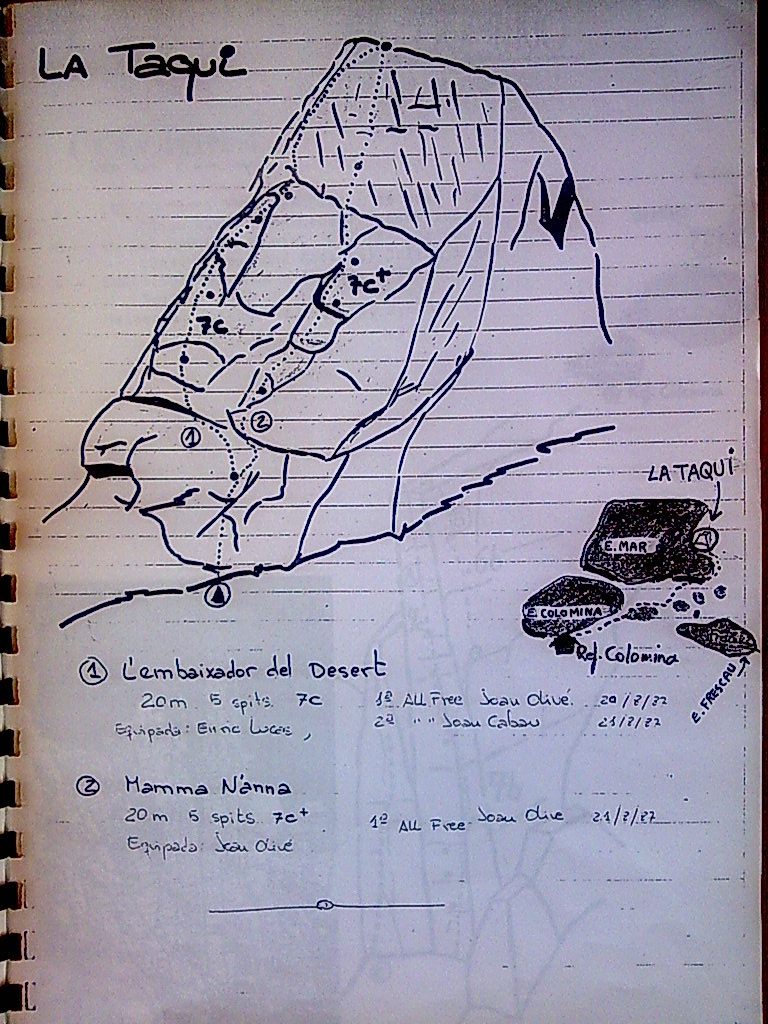 LA TaquI
7c+
7c
1
2
LA TAQUI
E. MAR
E. COLOMINA
Ref. Colomina
E. FRESCAU
1 L'embaixador del Desert
20m 5 spits. 7c 1ª ALL Free Joan Olivé.
Equipada: Enric Lucas, 2ª " " Joan Cabau
2 Mamma N'anna
20m 5 spits 7c+ 1ª ALL Free Joan Olive
Equipada: Joan Olivé